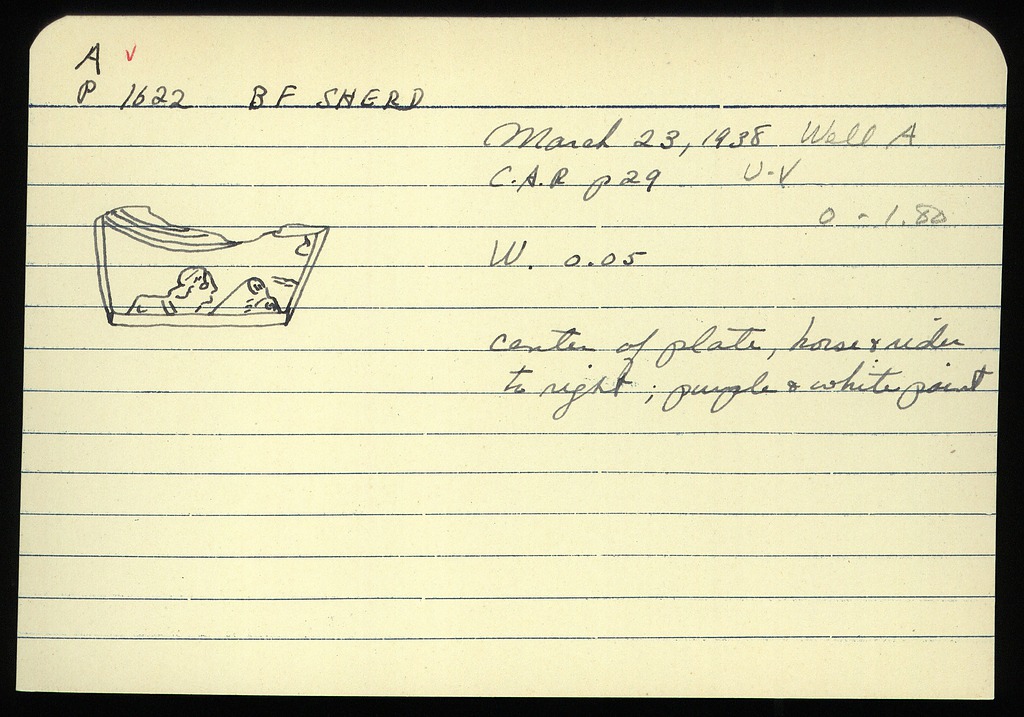 A v
P 1622 BF SHERD
March 23, 1938 Well A
C.A.R p 29 U-V
0 - 1.80
W. 0.05
center of plate, horse & rider
to right; purple & white paint